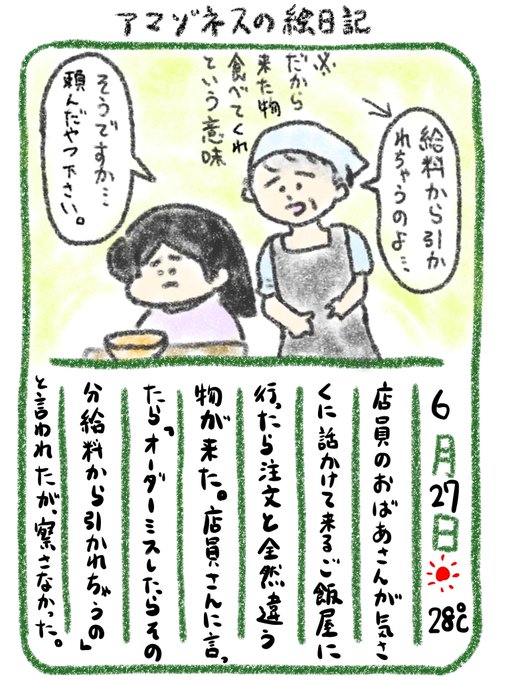 アマゾネスの絵日記
給料から引か
れちゃうのよ…
※
だから
来た物
食べてくれ
という意味
そうですか…
頼んだやつ下さい。
6月27日 28℃
店員のおばあさんが気さ
くに話かけて来るご飯屋に
行ったら注文と全然違う
物が来た。店員さんに言っ
たら「オーダーミスしたらその
分給料から引かれちゃうの」
と言われたが、察さなかった。